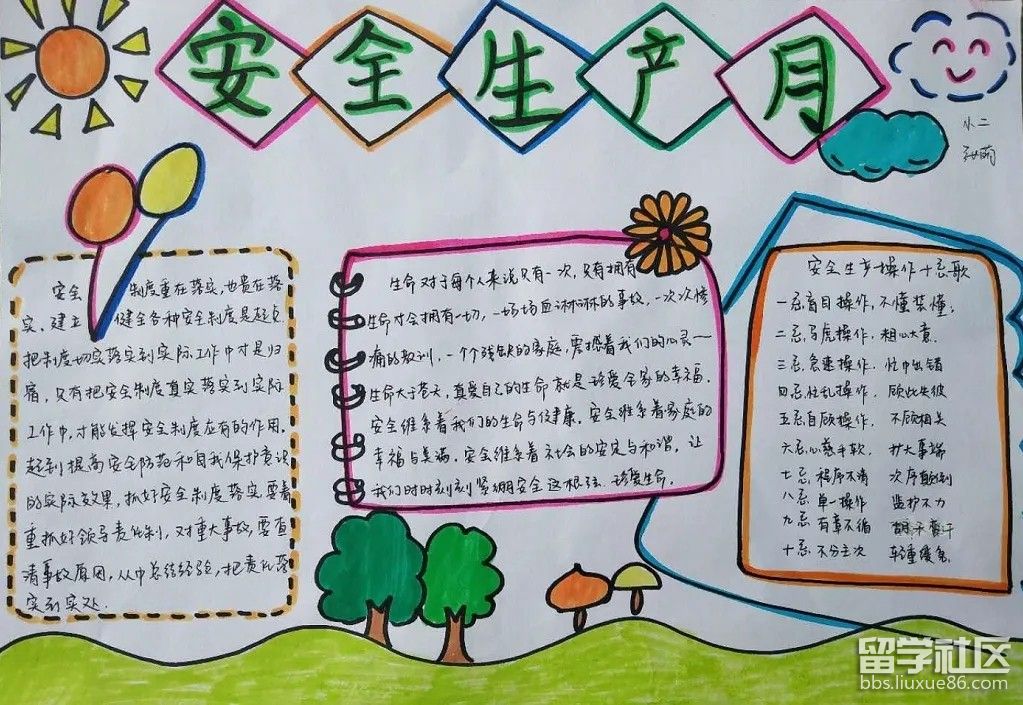 安全生产月
小二
安全 制度重在落实,也贵在落
实、建立 健全各种安全制度是起点
把制度切实落实到实际工作中才是归
宿,只有把安全制度真实落实到实际
工作中,才能发挥安全制度应有的作用,
起到提高安全防范和自我保护意识
的实际效果,抓好安全制度落实要着
重抓好领导责任制,对重大事故,要查
清事故原因,从中总结经验,把责任落
实到实处.
生命对于每个人来说只有一次,只有拥有
生命才会拥有一切,一场场血淋淋的事故,一次次惨
痛的教训,一个个残缺的家庭,震撼着我们的心灵一
生命大于苍天,真爱自己的生命就是珍爱全家的幸福.
安全维系着我们的生命与健康,安全维系着家庭的
幸福与美满,安全维系着社会的安定与和谐,让
我们时时刻刻紧绷安全这根弦,珍爱生命.
安全生产操作十忌歌
一忌盲目操作,不懂装懂;
二忌马虎操作,粗心大意.
三忌急速操作,忙中出错
四忌忙乱操作,顾此失彼
五忌自顾操作,不顾相关
六忌心慈手软,扩大事端
七忌程序不清 次序颠倒
八忌单一操作 监护不力
九忌有章不循 胡干蛮干
十忌不分主次 轻重缓急
留学社区
bbs.liuxue86.com